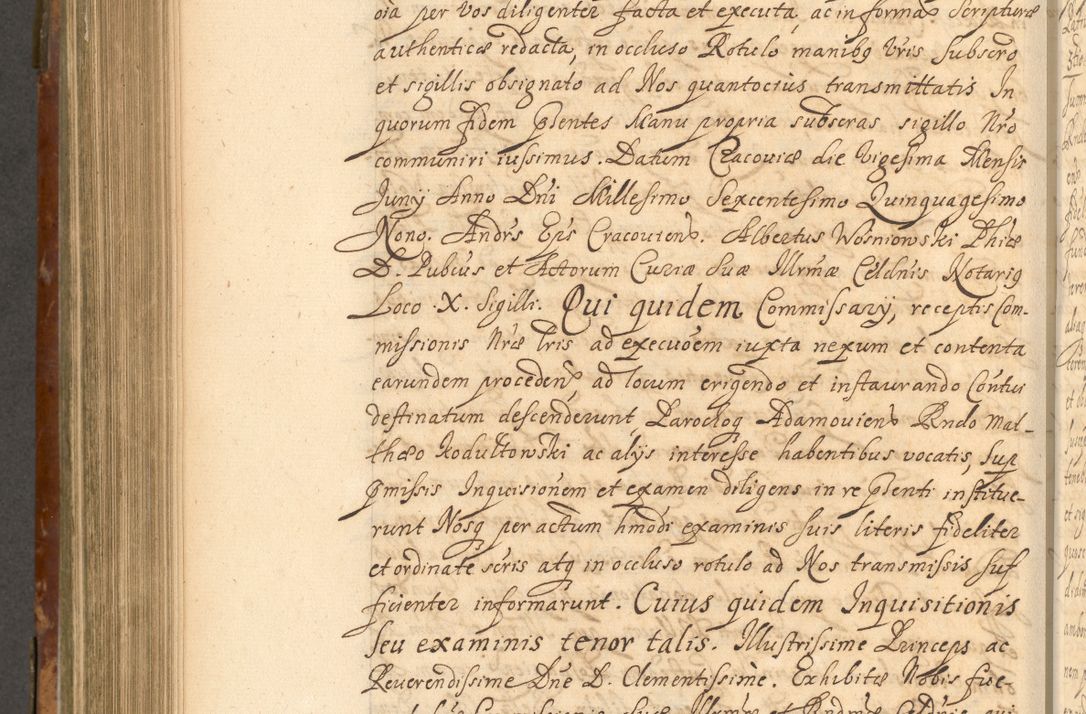 oia per Vos diligenter facta et executa, ac in formã Scripturæ
authenticæ redacta, in occluso Rotulo manibq Vris subscro
et sigillis obsignato ad Nos quantocius transmittatis In
quorum fidem pñtes Manu propria subscras sigillo Nro
communiri iussimus. Datum Cracoviæ die vigesima Mensis
Juny Anno Dñi Millesimo Sexcentesimo Quinquagesimo
Nono. Andrs Eps Cracovieñ. Albertus Wosniowski Phiæ
D. Pubcus et Actorum Curiæ Suæ Illrmæ Celdnis Notariq
Loco .X. Sigilli. Qui quidem Commissary, receptis Com-
missionis Nræ lris ad execuoem iuxta nexum et contenta
earundem procedeñ ad locum erigendo et instaurando Contui
destinatum descenderunt, Parochoq Adamovieñ Rndo Mat-
thæo Kodultowski ac alys interesse habentibus vocatis, sup
pmissis Inquisitionem et examen diligens in re pñti institue-
runt Nosq per actum hmõdi examinis suis literis fideliter
et ordinate scris atq in occluso rotulo ad Nos transmissis suf
ficienter informarunt. Cuius quidem Inquisitionis
seu examinis tenor talis. Illustrissime Princeps ac
Reverendissime Dñe D. Clementissime. Exhibitæ Nobis fue-